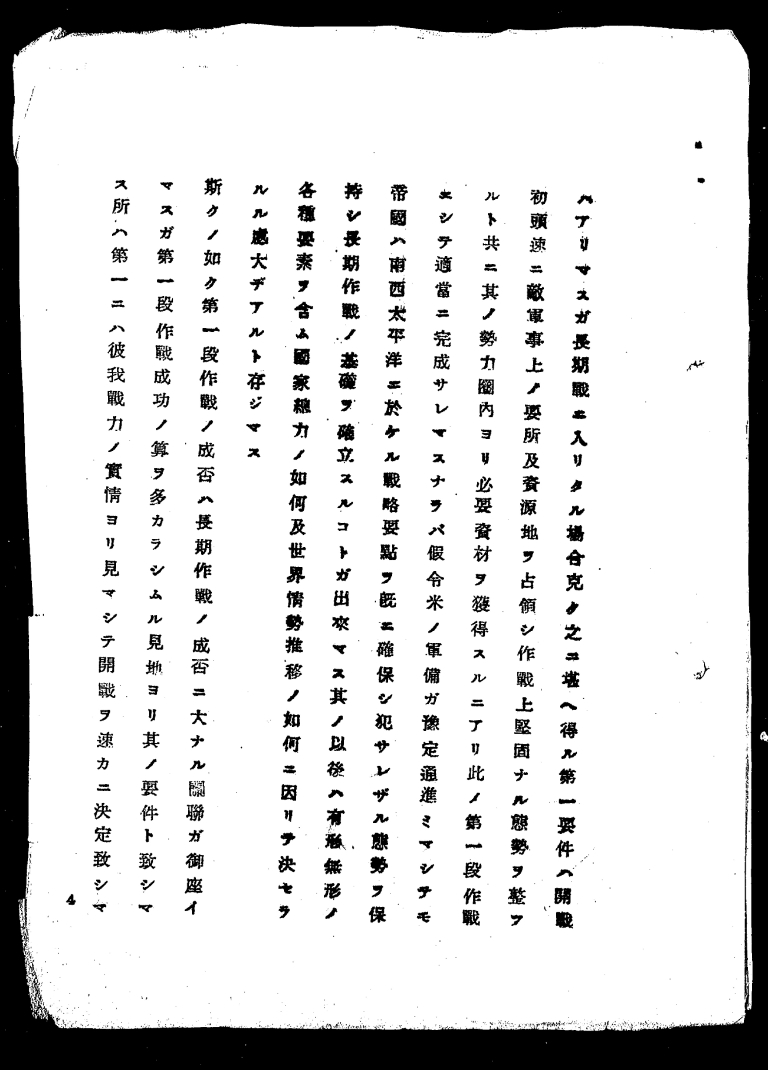 ハアリマスガ長期戰ニ入リタル場合克ク之ニ堪ヘ得ル第一要件ハ開戰
初頭速ニ敵軍事上ノ要所及資源地ヲ占領シ作戰上堅固ナル態勢ヲ整フ
ルト共ニ其ノ勢力圈內ヨリ必要資材ヲ獲得スルニアリ此ノ第一段作戰
ニシテ適當ニ完成サレマスナラバ假令米ノ軍備ガ豫定通進ミマシテモ
帝國ハ南西太平洋ニ於ケル戰略要點ヲ既ニ確保シ犯サレザル態勢ヲ保
持シ長期作戰ノ基礎ヲ確立スルコトガ出來マス其ノ以後ハ有形無形ノ
各種要素ヲ含ム國家總力ノ如何及世界情勢推移ノ如何ニ因リテ決セラ
ルル處大デアルト存ジマス
斯クノ如ク第一段作戰ノ成否ハ長期作戰ノ成否ニ大ナル關聯ガ御座イ
マスガ第一段作戰成功ノ算ヲ多カラシムル見地ヨリ其ノ要件ト致シマ
ス所ハ第一ニハ彼我戰力ノ實情ヨリ見マシテ開戰ヲ速カニ決定致シマ
4